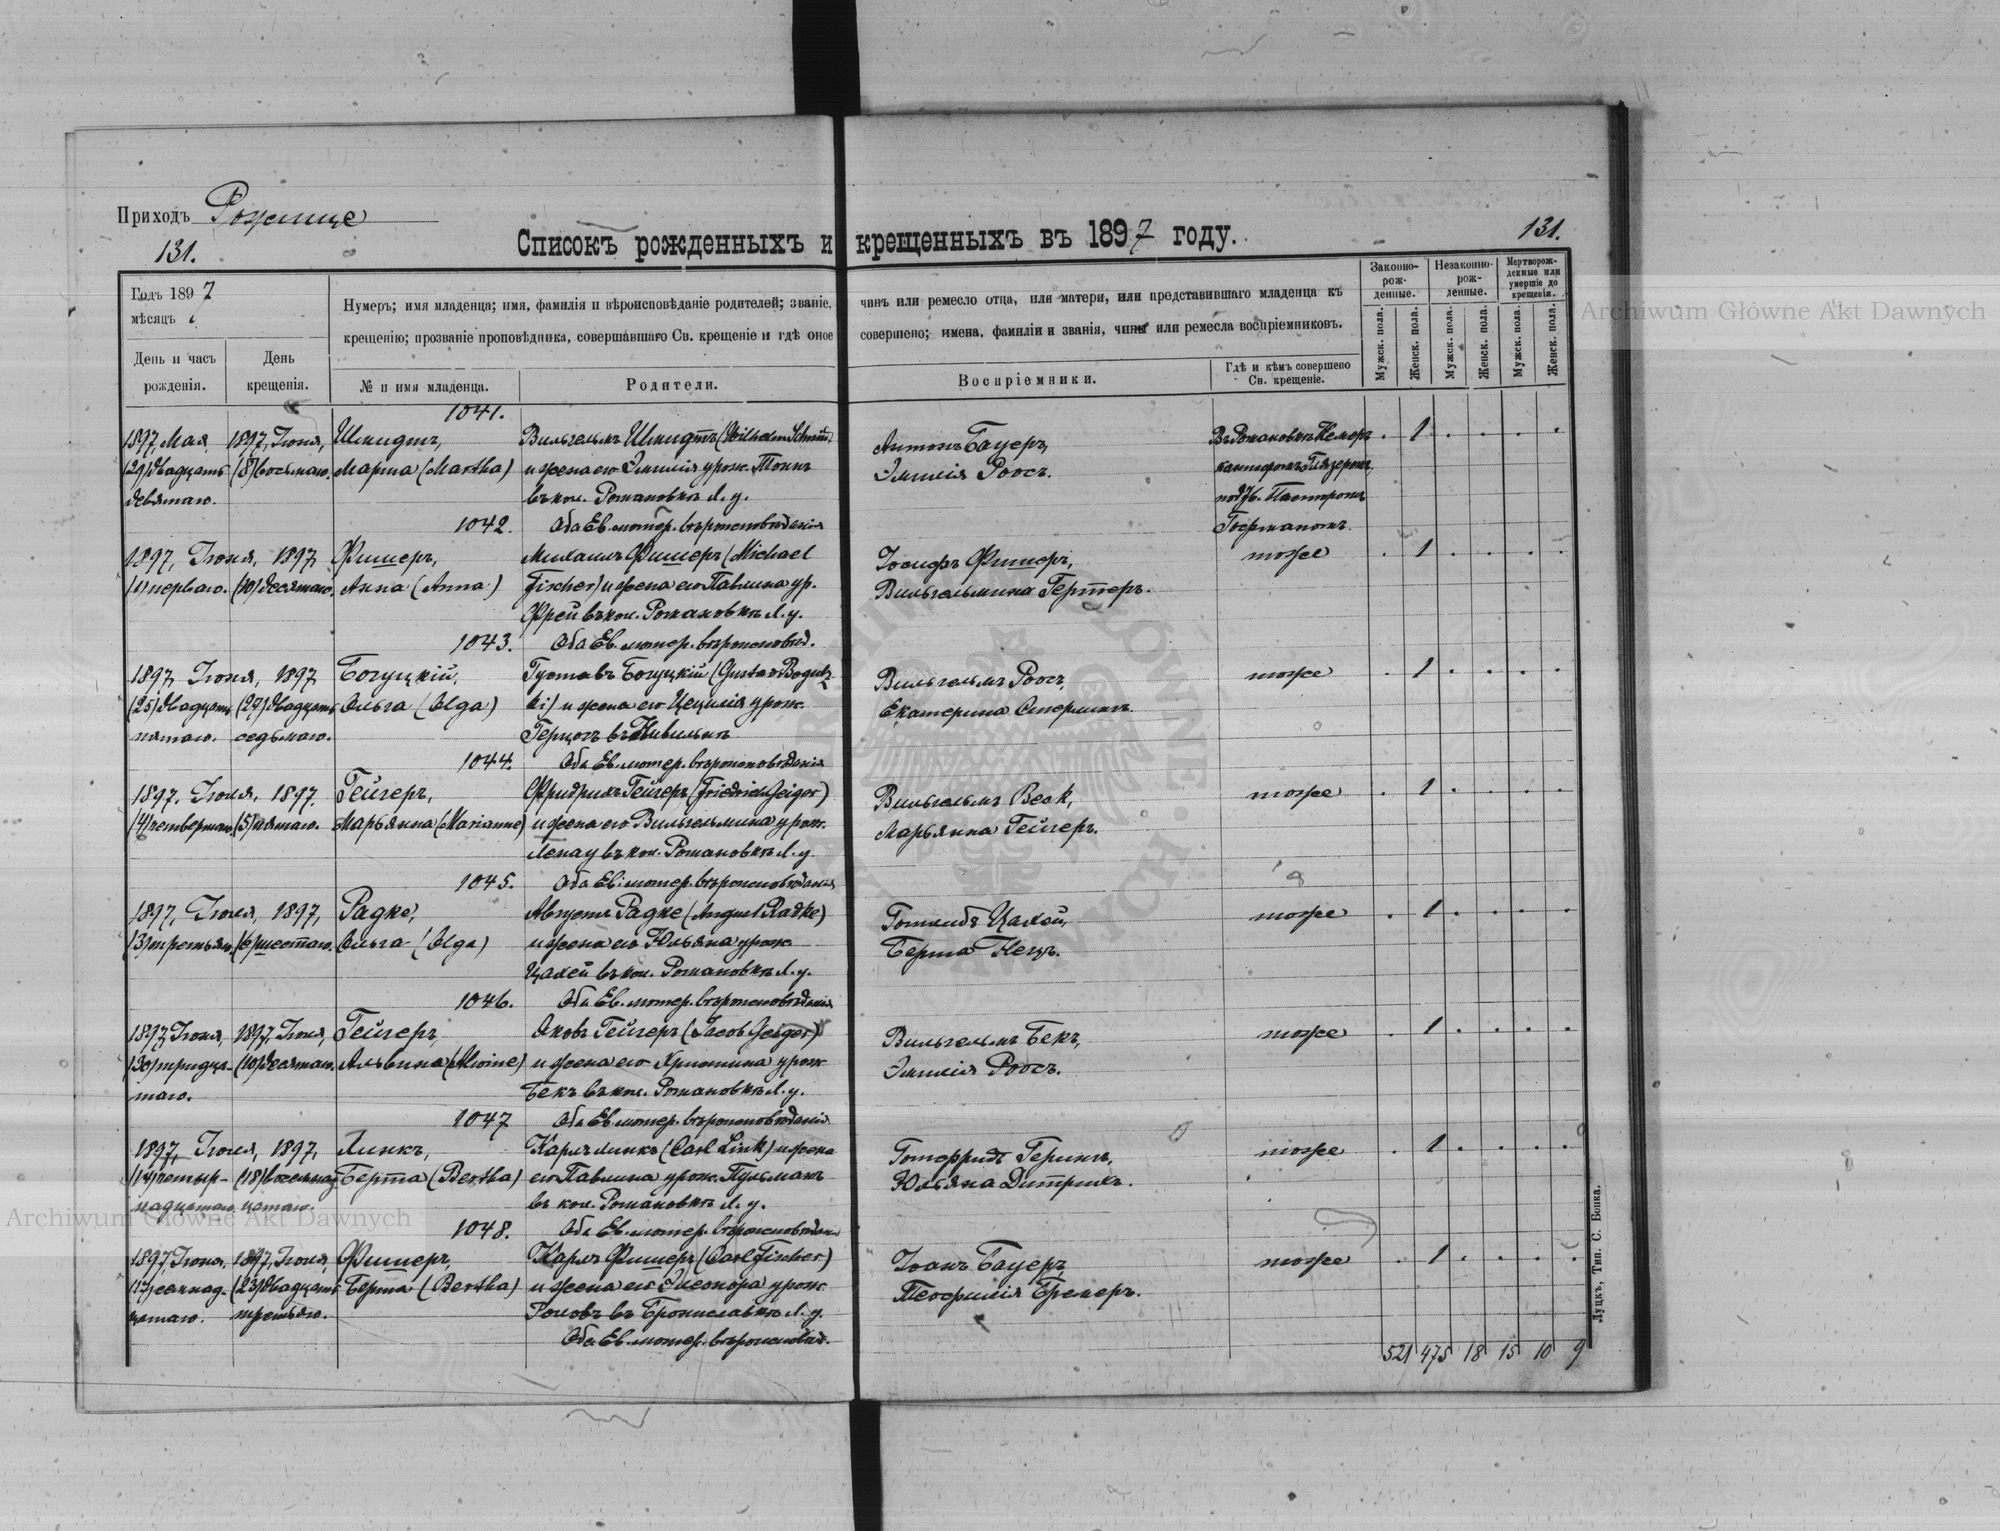 Приходъ Рожище
131.
Списокъ рожденныхъ и крещенныхъ въ 1897 году.
131.
Годъ 1897
мѣсяцъ
День и часъ рожденія.
День крещенія.
Нумеръ; имя младенца; имя, фамилія и вѣроисповѣданіе родителей; званіе, чинъ или ремесло отца, или матери, или представившаго младенца къ
крещенію; прозваніе проповѣдника, совершавшаго Св. крещеніе и гдѣ оное совершено; имена, фамиліи и званія, чины или ремесла воспріемниковъ.
№ и имя младенца.
Родители.
Воспріемники.
Гдѣ и кѣмъ совершено Св. крещеніе.
Законно-рож-денные.
Незаконно-рож-денные.
Мертворож-денные или умершіе до крещенія.
Мужск. пола.
Женск. пола.
Мужск. пола.
Женск. пола.
Мужск. пола.
Женск. пола.
1041.
1897, Мая, 1897, Іюня, Шмидтъ, Вильгельмъ Шмидтъ (Wilhelm Schmidt) Антонъ Бауеръ, 1
(29) двадцать (8) восьмаго. Марта (Martha) и жена его Эмилія урож. Эмилія Роосъ.
девятаго. въ кол. Романовкѣ Л. у. Пасторомъ
1042. Оба Ев. лютер. вѣроисповѣданія
1897, Іюня, 1897, Фишеръ, Михаилъ Фишеръ (Michael Іосифъ Фишеръ, тоже 1
(1) перваго. (10) десятаго. Анна (Anna) Fischer) и жена его Павлина ур. Вильгельмина Гертеръ.
Фрей въ кол. Романовкѣ Л. у.
1043. Оба Ев. лютер. вѣроисповѣд.
1897, Іюня, 1897, Богуцкій, Густавъ Богуцкій (Gustav Boguts- Вильгельмъ Роосъ, тоже 1
(25) двадцать (27) двадцать Ольга (Olga) ki) и жена его Цецилія урож. Екатерина
пятаго. седьмаго. Герцогъ въ
1044. Оба Ев. лютер. вѣроисповѣданія
1897, Іюля, 1897, Гейгеръ, Фридрихъ Гейгеръ (Friedrich Geiger) Вильгельмъ Beak, тоже 1
(4) четвертаго (5) пятаго. Марьянна (Marianne) и жена его Вильгельмина урож. Марьянна Гейгеръ.
Ленау въ кол. Романовкѣ Л. у.
1045. Оба Ев. лютер. вѣроисповѣданія
1897, Іюля, 1897, Радке, Августъ Радке (August Radke) Готлибъ Цалей, тоже 1
(3) третьяго (6) шестаго. Ольга (Olga) и жена его Юльяна урож. Берта Нецъ.
Цалей въ кол. Романовкѣ Л. у.
1046. Оба Ев. лютер. вѣроисповѣданія
1897, Іюня, 1897, Іюля, Гейгеръ, Яковъ Гейгеръ (Jacob Geiger) Вильгельмъ Бекъ, тоже 1
(30) тридца- (10) десятаго. Альвина (Alwine) и жена его Христина урож. Эмилія Роосъ.
таго. Бекъ въ кол. Романовкѣ Л. у.
1047 Оба Ев. лютер. вѣроисповѣданія
1897, Іюля, 1897, Линкъ, Карлъ Линкъ (Carl Link) и жена Готфридъ Герингъ, тоже 1
(14) четыр- (18) восемнад- Берта (Bertha) его Павлина урож. Пульманъ Юльяна Дитрихъ.
надцатаго. цатаго. въ кол. Романовкѣ Л. у.
1048. Оба Ев. лютер. вѣроисповѣдан.
1897, Іюня, 1897, Іюня, Фишеръ, Карлъ Фишеръ (Carl Fischer) Іоанъ Бауеръ, тоже 1
(17) семнад- (23) двадцать Берта (Bertha) и жена его Элеонора урож. Теофилія Бремеръ.
цатаго. третьяго. въ Брониславкѣ Л. у.
Оба Ев. лютер. вѣроисповѣд.
521 475 18 15 10 9
Луцкъ, Тип. С. Бонка.
Archiwum Główne Akt Dawnych
Archiwum Główne Akt Dawnych